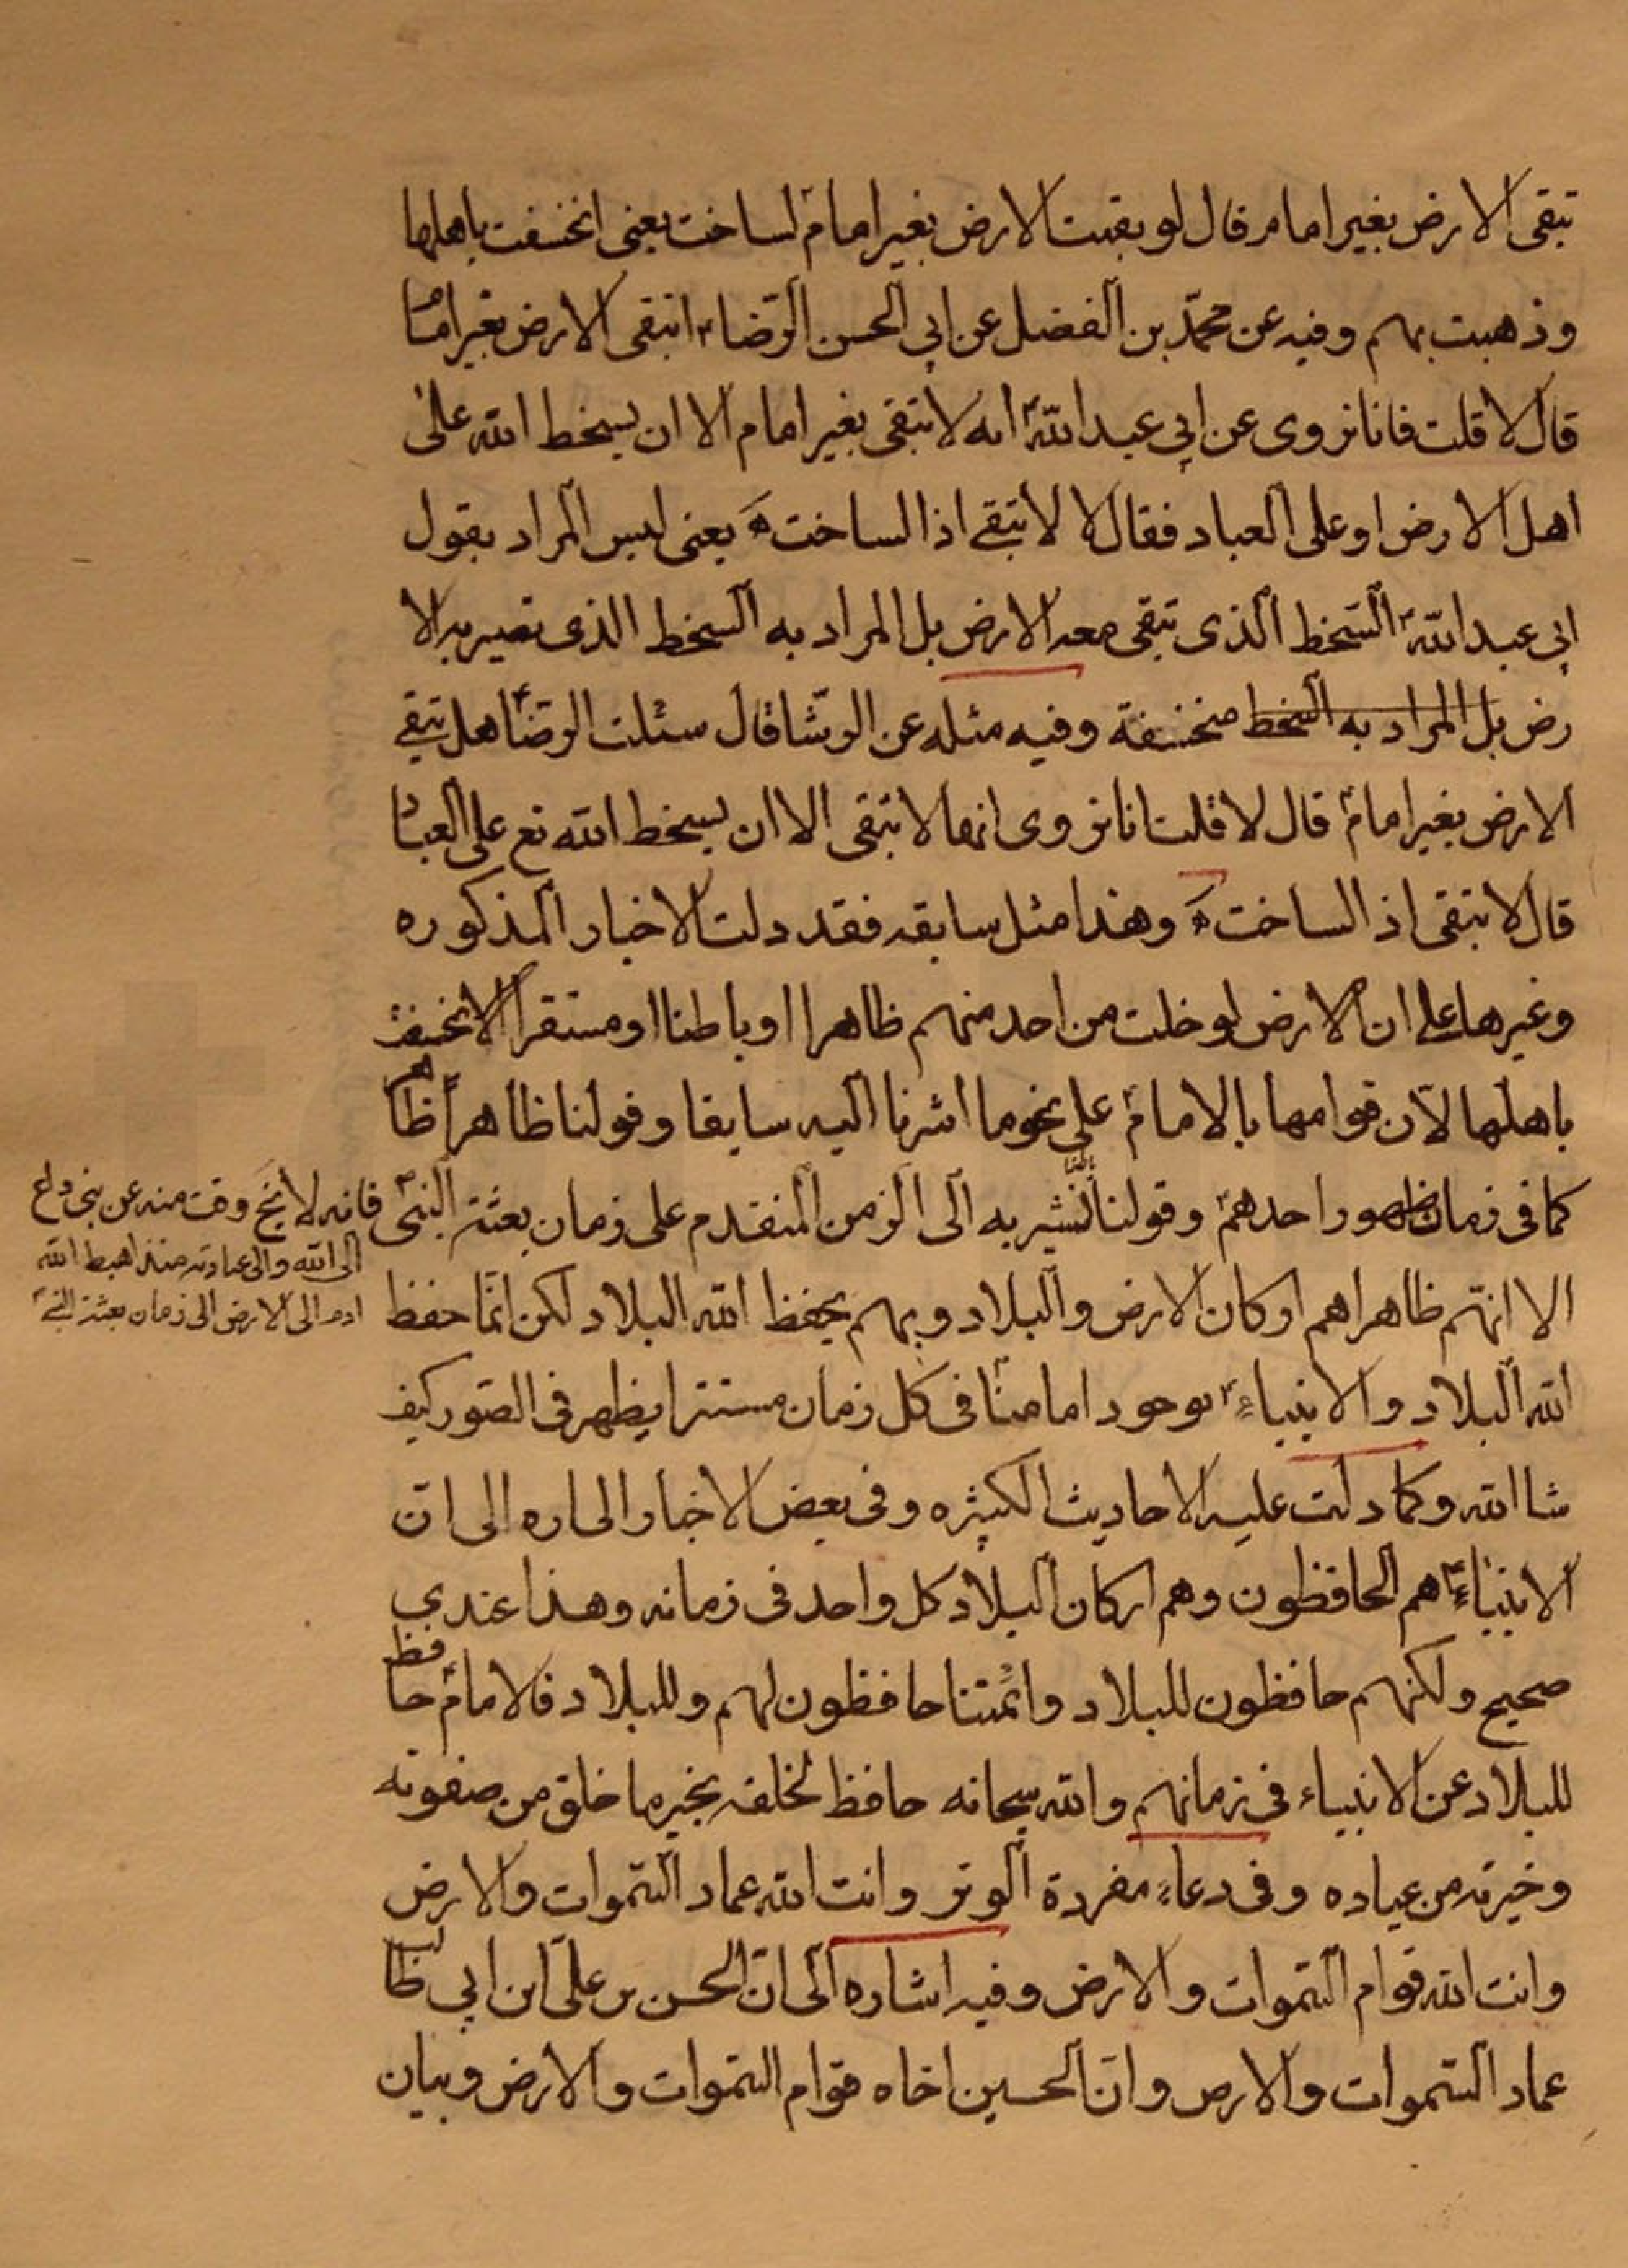 تبقى الارض بغير امام قال لو بقيت الارض بغير امام لساخت يعنى انخسفت باهلها
وذهبت بهم وفيه عن محمّد بن الفضل عن ابي الحسن الرّضاء اتبقى الارض بغير امام
قال لا قلت فانا نروى عن ابي عبد اللهؑ انه لا تبقى بغير امام الا ان يسخط الله على
اهل الارض او على العباد فقال لا لا تبقى اذا لساخت ه يعنى ليس المراد بقول
ابى عبد اللهؑ السّخط الذى تبقى معه الارض بل المراد به السّخط الذى تصير به الا
رض بل المراد به السخط منخسفة وفيه مثله عن الوشّا قال سئلت الرّضاؑ هل تبقى
الارض بغير امام قال لا قلت انا نروى انها لا تبقى الا ان يسخط الله تع على العباد
قال لا تبقى اذ الساخت ه وهذا مثل سابقه فقد دلت الاخبار المذكوره
وغيرها على ان الارض لو خلت من احد منهم ظاهرا او باطنا او مستقرا لانخسفت
باهلها لانّ قوامها بالامامؑ على نحو ما اشرنا اليه سابقا وقولنا ظاهراً ظاهر
كما فى زمان ظهور احدهمؑ وقولنا باطنا نشير به الى الزمن المتقدم على زمان بعثة النبىّؐ
فانه لا يخ وقت منه عن نبى داع
الى الله والى عبادته منذ اهبط الله
ادم الى الارض الى زمان بعثة النبىؐ
الا انهم ظاهرا هم اركان الارض والبلاد وبهم يحفظ الله البلاد لكن انّما حفظ
الله البلاد والانبياءؑ بوجود امام منّا فى كل زمان مستترا يظهر فى الصّور كيف
شا الله وكما دلت عليه الاحاديث الكثيره وفى بعض الاخبار اشاره الى انّ
الانبياءؑ هم الحافظون وهم اركان البلاد كل واحد فى زمانه وهذا عندي
صحيح ولكنهم حافظون للبلاد وائمّتنا حافظون لهم وللبلاد فالامامؑ حافظ
للبلاد عن الانبياء فى زمانهم والله سبحانه حافظ لخلقه بخير ما خلق من صفوته
وخيرته من عباده وفى دعاء مفردة الوتر وانت الله عماد السّموات والارض
وانت الله قوام السّموات والارض وفيه اشاره الى انّ الحسن بن علىّ ابن ابي طالب
عماد السّموات والارض وانّ الحسين اخاه قوام السّموات والارض وبيان